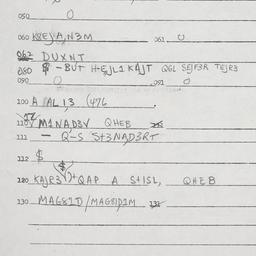 050 0
060 KBEJA,N3M 061 U
062 DUXNT
080 $ -BUT H+EJL1 KAJT QGL SEJP3R TEJR3
090 0 091 0
100 A ALI,3 (476
110 M1NAD3V QHEB
111 - Q-S S+3NAD3RT
112 $
120 KAJR3 )+QAP A S+ISL, QHEB
130 MAG81D/MAG81D1M 131